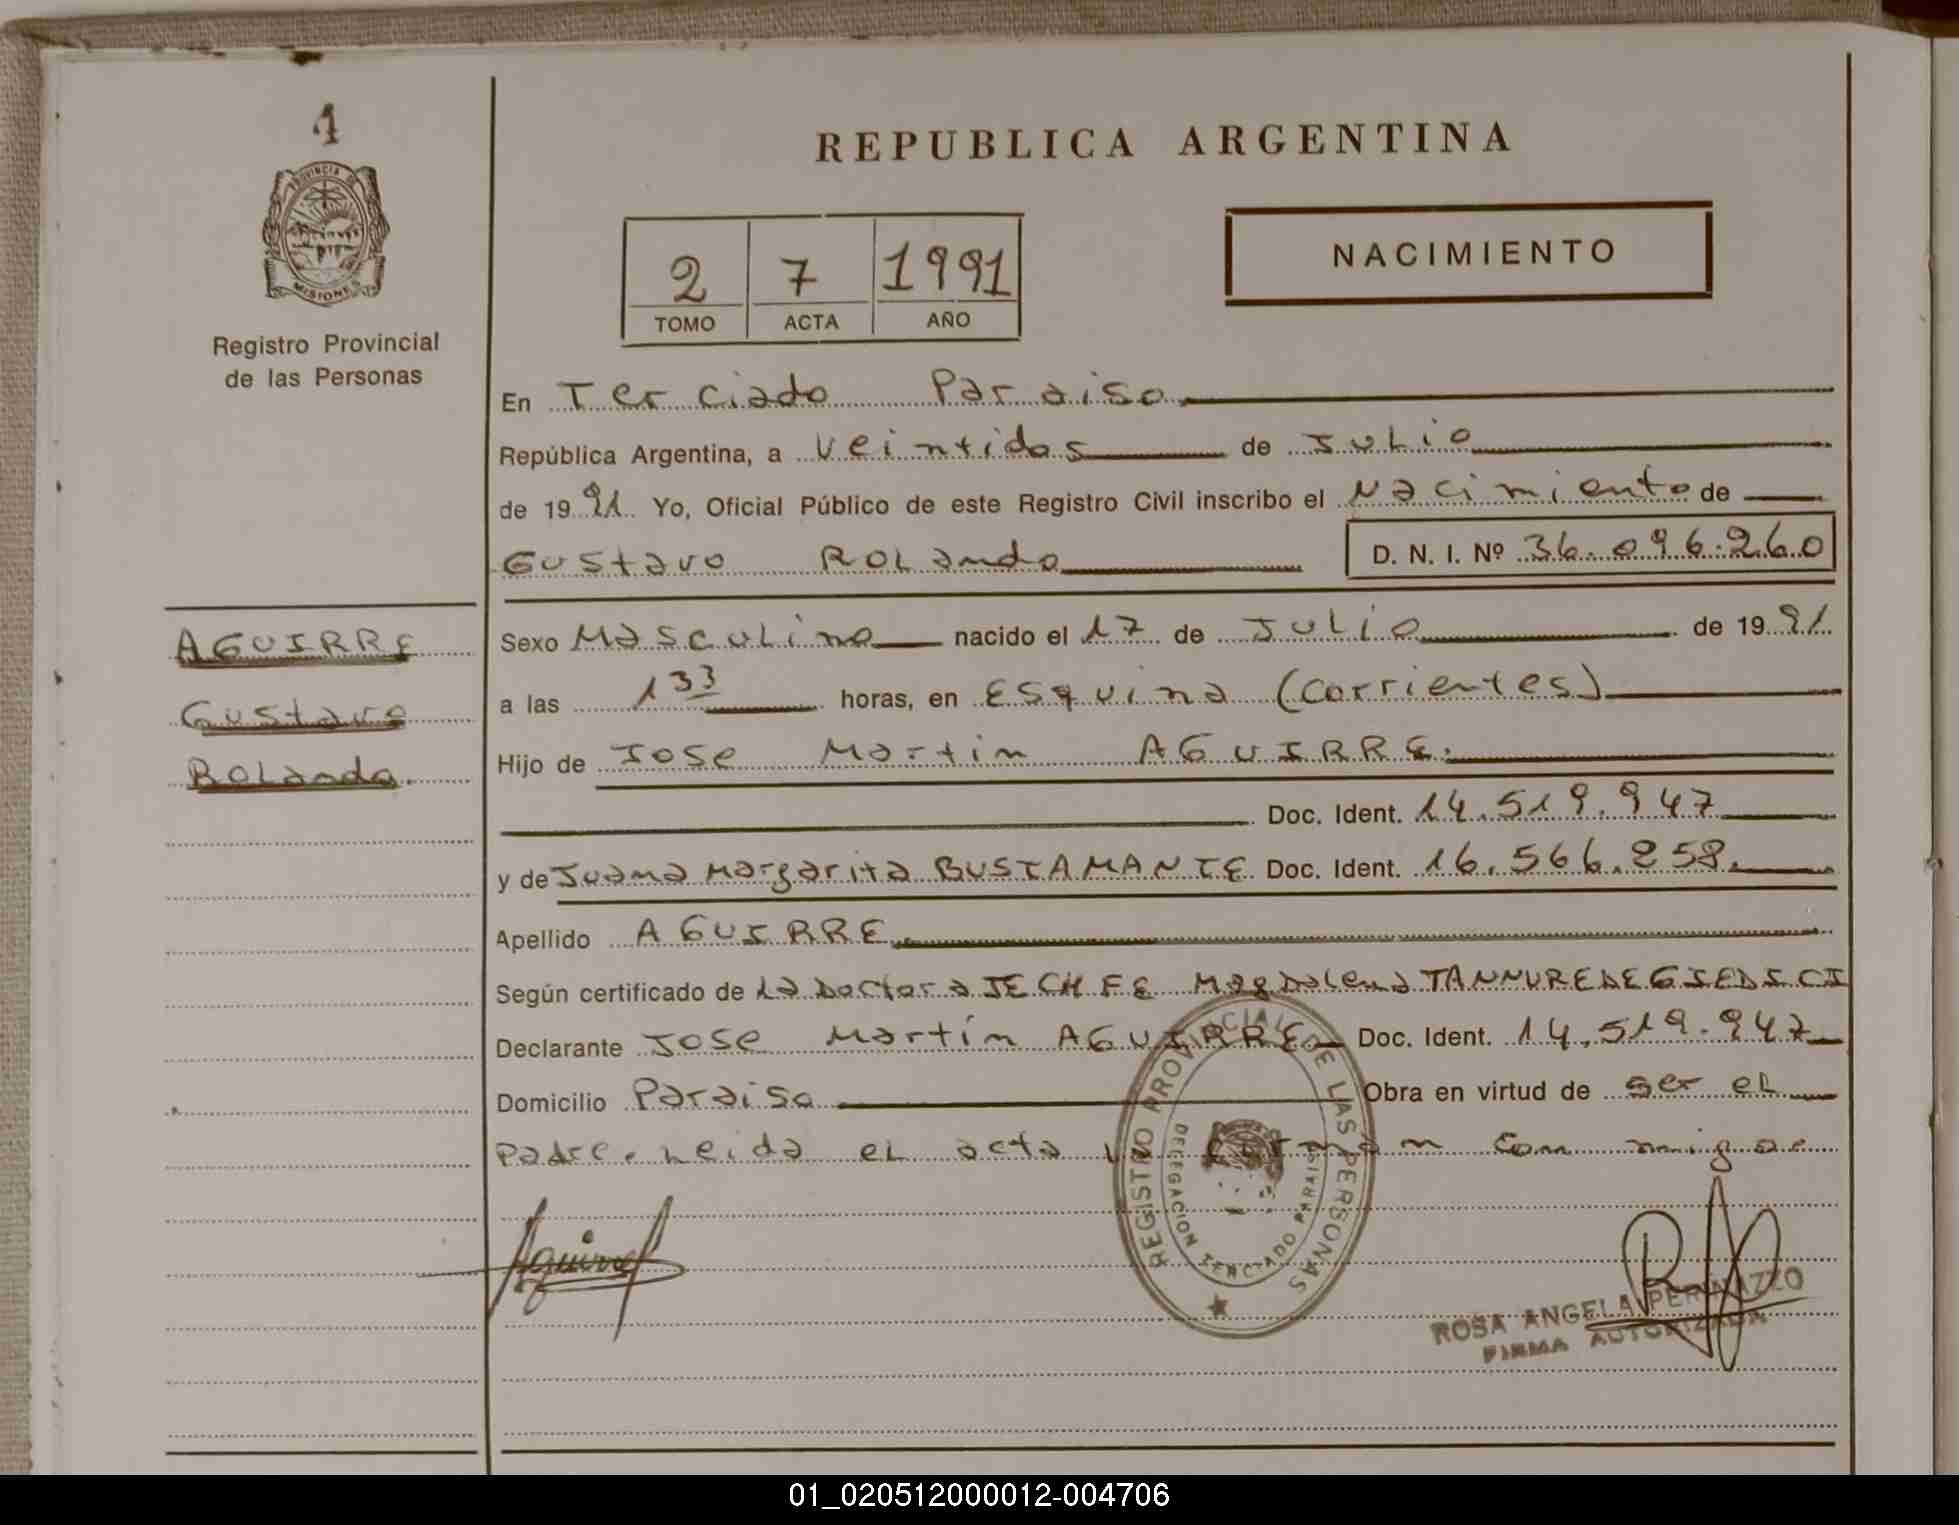 1
PROVINCIA DE
MISIONES
Registro Provincial
de las Personas
AGUIRRE
Gustavo
Rolando.
REPUBLICA ARGENTINA
2 7 1991
TOMO ACTA AÑO
NACIMIENTO
En Terciado Paraiso
República Argentina, a veintidos de Julio
de 1991 Yo, Oficial Público de este Registro Civil inscribo el Nacimiento de
Gustavo Rolando D. N. I. Nº 36.096.260
Sexo Masculino nacido el 17 de Julio de 1991
a las 133 horas, en Esquina (Corrientes)
Hijo de Jose Martin AGUIRRE.
Doc. Ident. 14.519.947
y de Juana Margarita BUSTAMANTE Doc. Ident. 16.566.258.
Apellido AGUIRRE.
Según certificado de La Doctora JECHFE Magdalena TANNUREDEGIEDICI
Declarante Jose Martin AGUIRRE Doc. Ident. 14.519.947
Domicilio Paraiso Obra en virtud de ser el
Padre. Leida el acta la firman con migo
Aguirre
REGISTRO PROVINCIAL DE LAS PERSONAS
DELEGACION TERCIADO PARAISO
ROSA ANGELA
FIRMA AUTORIZADA
01_020512000012-004706